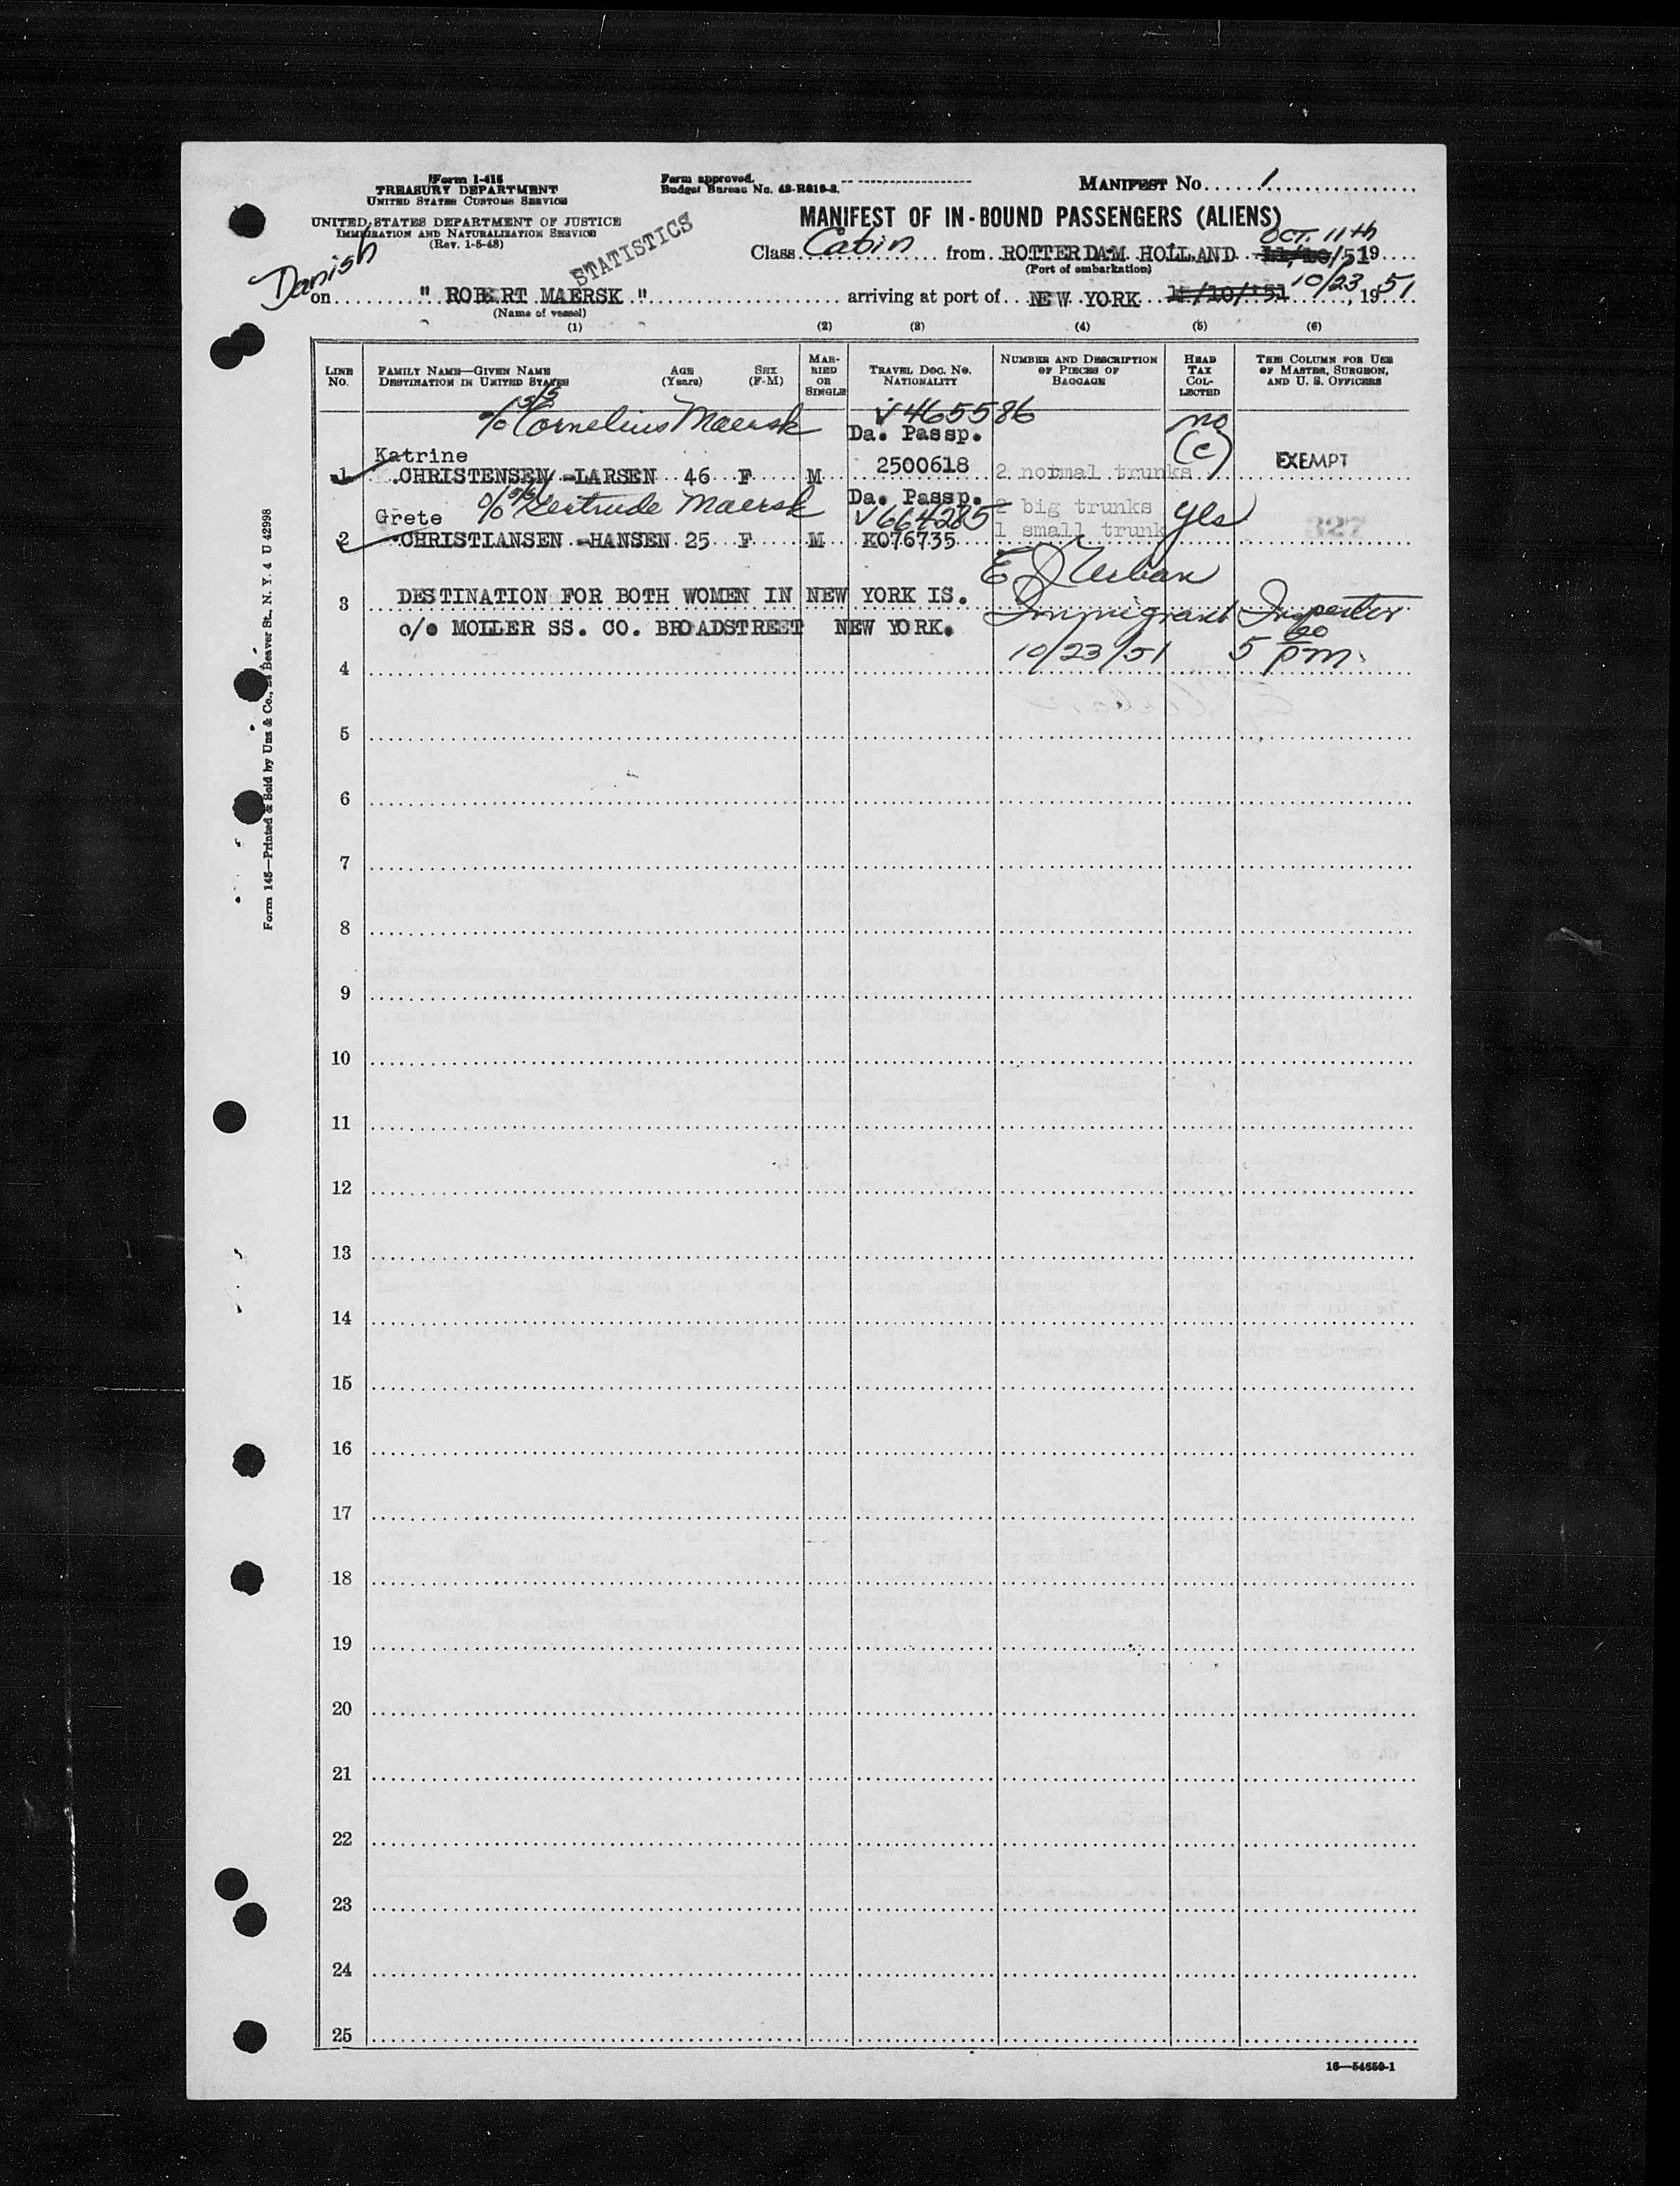 Form I-415
TREASURY DEPARTMENT
UNITED STATES CUSTOMS SERVICE
UNITED STATES DEPARTMENT OF JUSTICE
IMMIGRATION AND NATURALIZATION SERVICE
(Rev. 1-5-48)
Form approved.
Budget Bureau No. 43-R019-3.
STATISTICS
MANIFEST No. 1
MANIFEST OF IN-BOUND PASSENGERS (ALIENS)
Class Cabin from ROTTERDAM HOLLAND OCT. 11th 11/10/5119
(Port of embarkation)
Danish
on " ROBERT MAERSK " arriving at port of NEW YORK 10/23, 1951
(Name of vessel)
(1) (2) (3) (4) (5) (6)
LINE No.
FAMILY NAME—GIVEN NAME
DESTINATION IN UNITED STATES
AGE (Years)
SEX (F-M)
MARRIED OR SINGLE
TRAVEL DOC. NO. NATIONALITY
NUMBER AND DESCRIPTION OF PIECES OF BAGGAGE
HEAD TAX COLLECTED
THIS COLUMN FOR USE OF MASTER, SURGEON, AND U. S. OFFICERS
c/o S/S Cornelius Maersk V465586 no
Da. Passp. (c)
Katrine 2500618 EXEMPT
1 CHRISTENSEN -LARSEN 46 F M 2 normal trunks
c/o S/S Gertrude Maersk Da. Passp. 2 big trunks yes
Grete V664285 1 small trunk 327
2 CHRISTIANSEN -HANSEN 25 F M K076735
E J Urban
3 DESTINATION FOR BOTH WOMEN IN NEW YORK IS. Immigrant Inspector
c/o MOLLER SS. CO. BROADSTREET NEW YORK.
4 10/23/51 5 20 pm.
5
6
7
8
9
10
11
12
13
14
15
16
17
18
19
20
21
22
23
24
25
Form 145—Printed & Sold by Unz & Co., 24 Beaver St. N. Y. 4 U 42998
16—54650-1